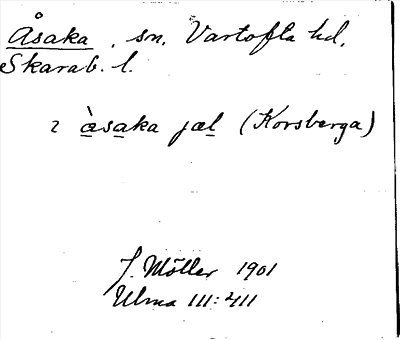 Åsaka . sn. Vartofta hd.
Skarab. l.
2 àsaka jæl (Korsberga)
J. Möller 1901
Ulma III:411